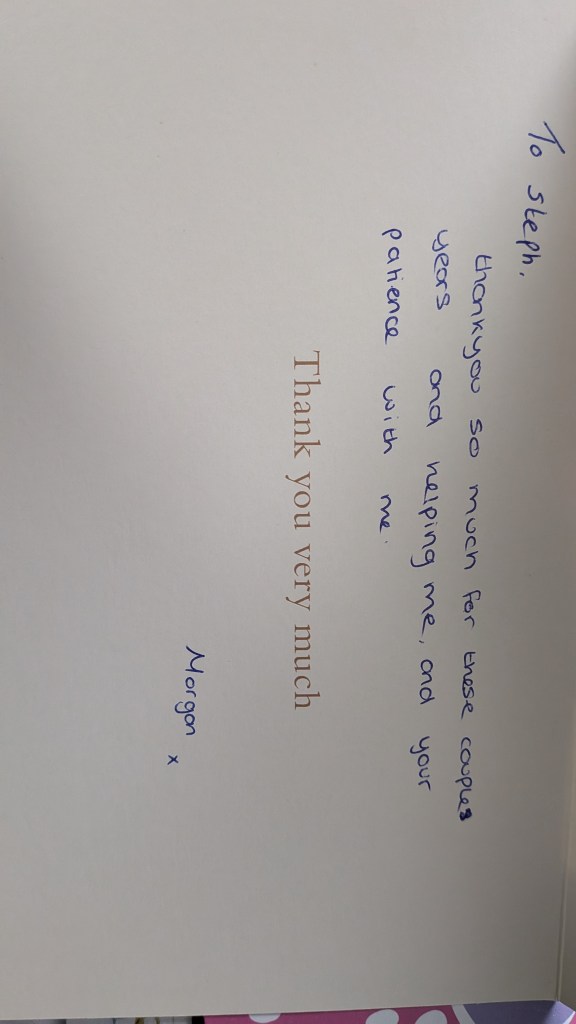 To Steph,
thankyou so much for these couples
years and helping me, and your
patience with me.
Thank you very much
Morgan x